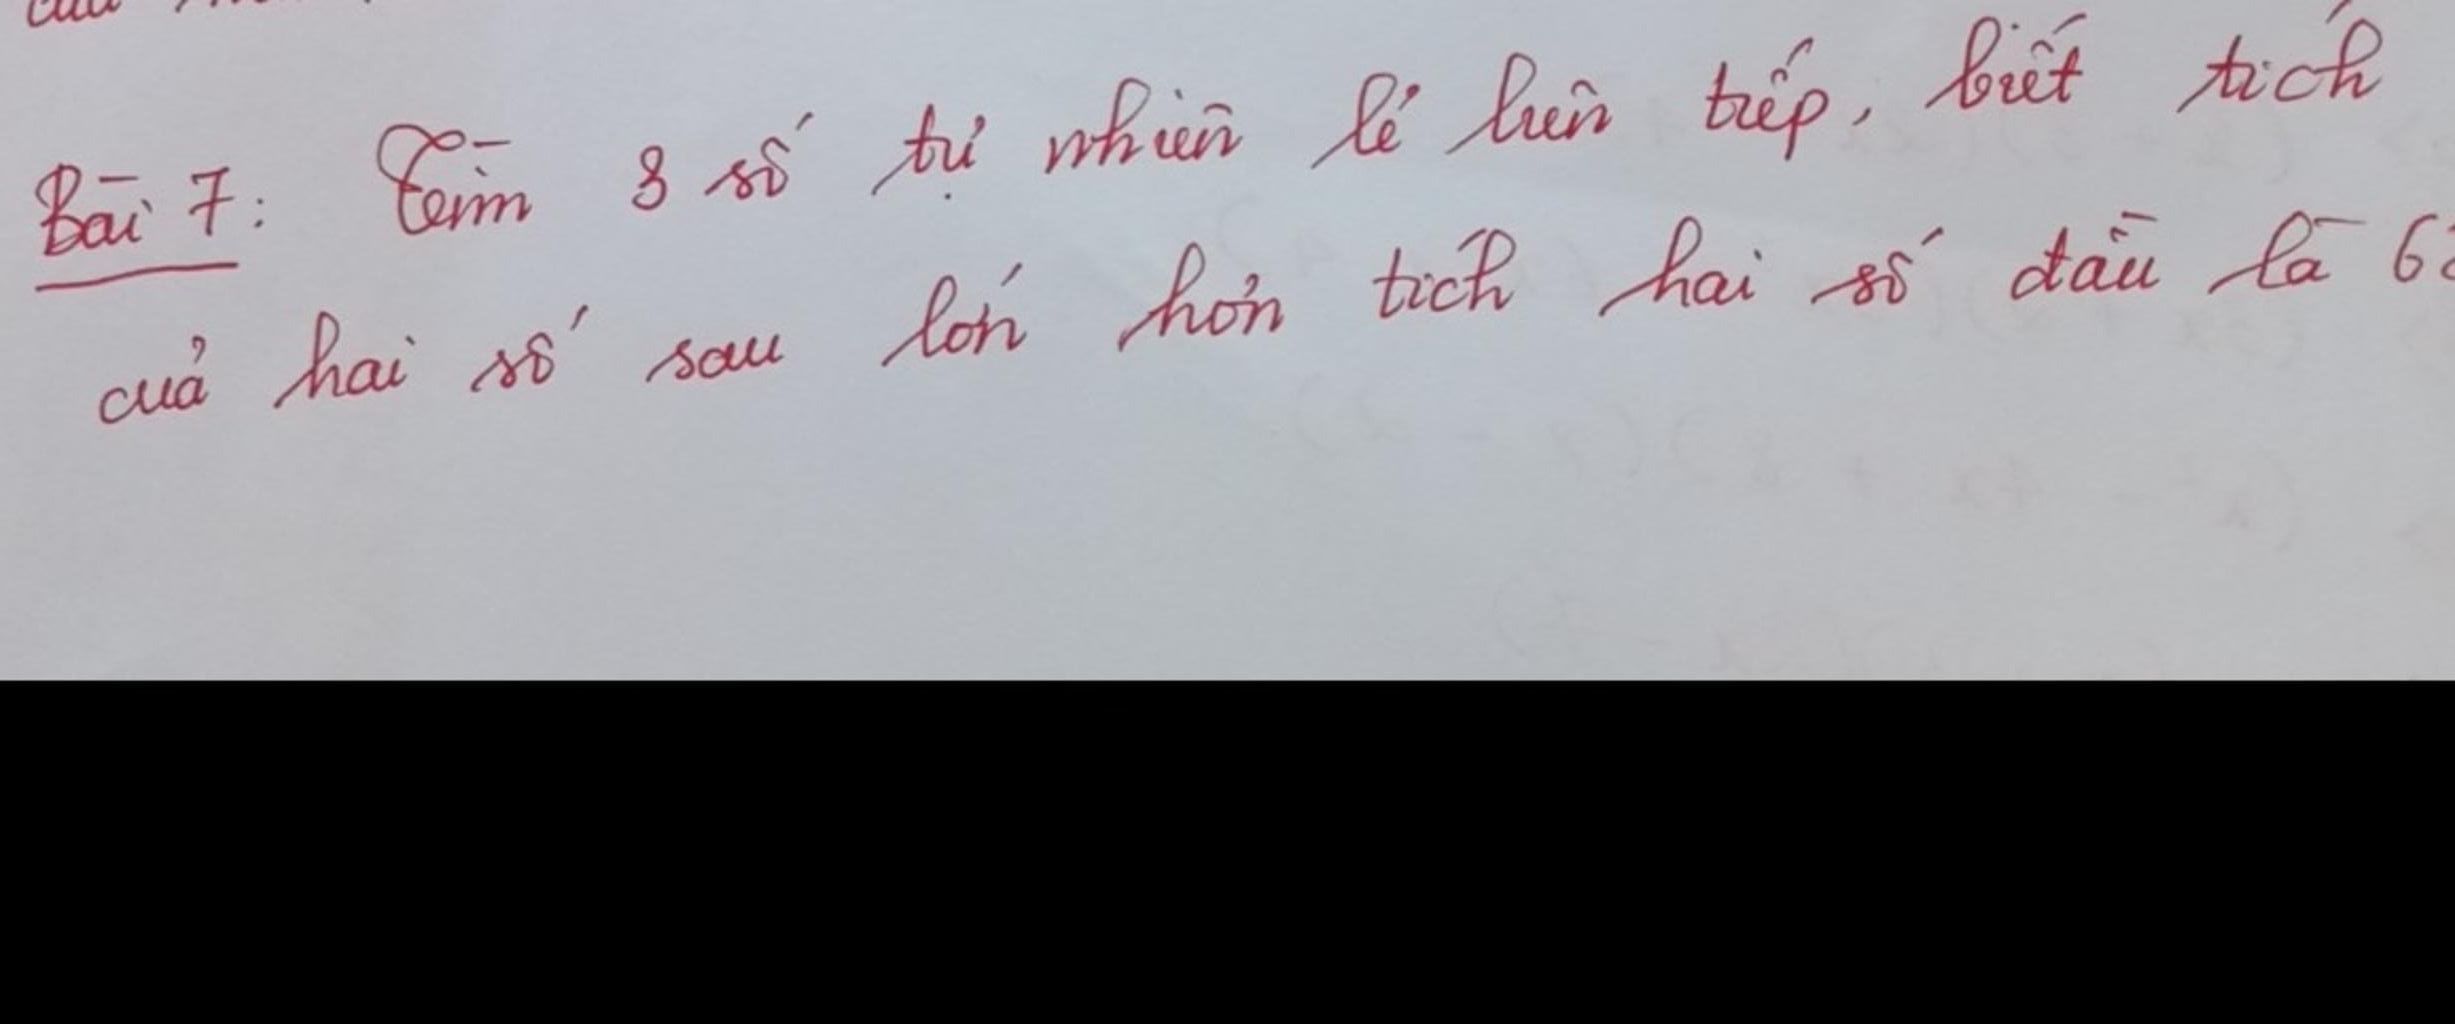 Bài 7: Tìm 3 số tự nhiên lẻ liên tiếp, biết tích
của hai số sau lớn hơn tích hai số đầu là 6